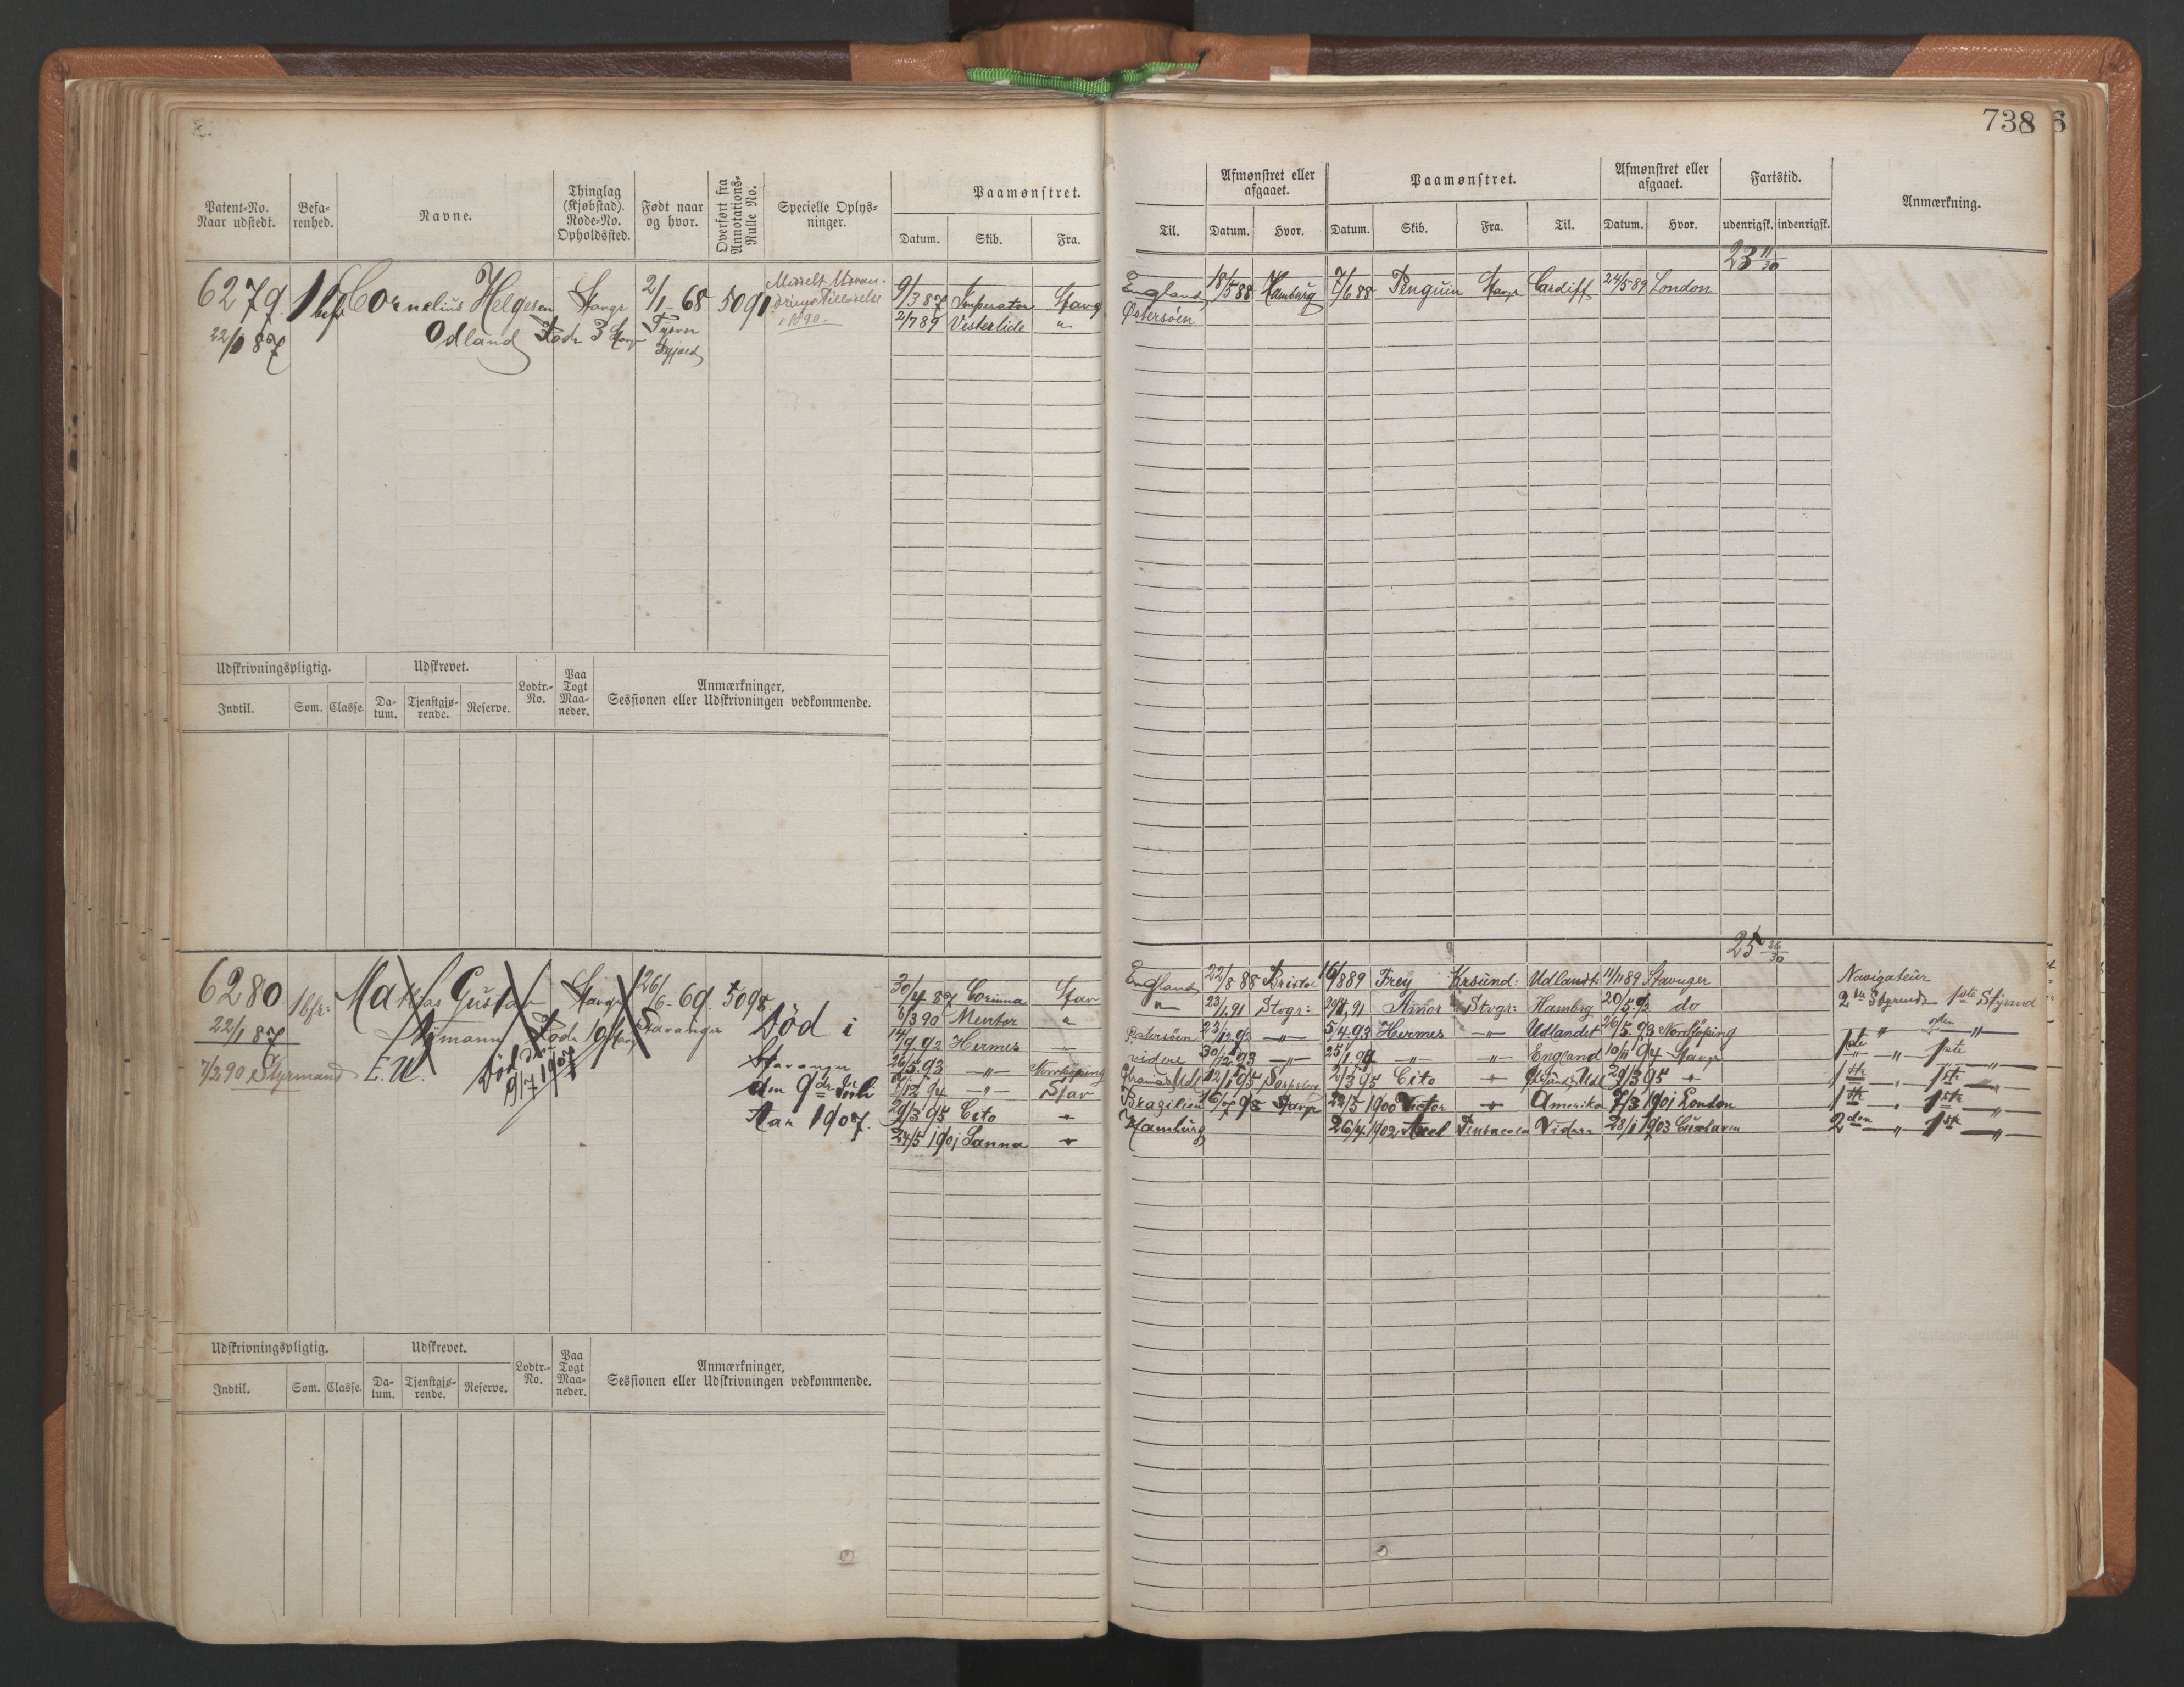 738 6
Patent-No. Naar udstedt.
Befarenhed.
Navne.
Thinglag (Kjøbstad). Rode-No. Opholdssted.
Født naar og hvor.
Overført fra Annotations-Rulle No.
Specielle Oplysninger.
Paamønstret.
Datum. Skib. Fra.
Til.
Afmønstret eller afgaaet.
Datum. Hvor.
Paamønstret.
Datum. Skib. Fra. Til.
Afmønstret eller afgaaet.
Datum. Hvor.
Fartstid.
udenrigsk. indenrigsk.
Anmærkning.
23 11/30
6279 1 bfr Cornelius Helgesen Stavgr 2/1 68 5091 9/3 87 Imperator Stavg England 18/5 88 Hamburg 7/6 88 Penguin Stavgr Cardiff 24/5 89 London
22/1 87 Odland Rode 3 Tysvær 2/7 89 Vesterlide " Østersøen
1890
Udskrivningspligtig. Udskrevet. Lodtr.-No. Paa Togt Maaneder. Anmærkninger, Sessionen eller Udskrivningen vedkommende.
Indtil. Som. Classe. Datum. Tjenstgjørende. Reserve.
25 26/30
6280 1 bfr: Mathias Gustav Stavgr 26/6-69 5094 30/4 87 Corinna Stav England 22/8 88 Bristol 16/8 89 Frey Krsund: Udlandt: 11/11 89 Stavnger Navigateur
22/1 87 Nymann Rode 19 Stavanger Død i 6/3 90 Mentor " " 23/1 91 Stvgr: 91 Amor Stvgr: Hambrg 20/5 do 2den Styrmd 1ste Styrmd
7/3 90 Styrmand E. U. Død 9/7 1907 Stavanger 14/9 92 Hermes Østersøen 23/12 92 5/4 93 Hermes Udlandet 26/5 93 Norrkøping
den 9de Juli 26/5 93 Norrköping videre 30/12 93 25/1 94 England 10/11 94 Stavgr 1ste " 1ste
Aar 1907. 12 94 Stav 12/1 95 2/3 95 Cito 29/3 95
29/3 95 Cito Brazilien 16/7 98 Stavgr 22/5 1900 Victor Amerika 7/3 1901 London
24/5 1901 Sanna Hamburg 26/4 1902 Axel Pensacola Videre 28/1 1903 Cuxhaven 2den " 1ste "
Udskrivningspligtig. Udskrevet. Lodtr.-No. Paa Togt Maaneder. Anmærkninger, Sessionen eller Udskrivningen vedkommende.
Indtil. Som. Classe. Datum. Tjenstgjørende. Reserve.